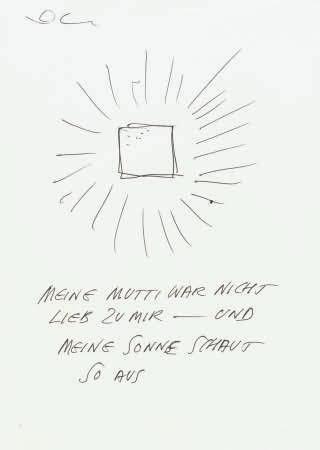 MEINE MUTTI WAR NICHT
LIEB ZU MIR — UND
MEINE SONNE SCHAUT
SO AUS